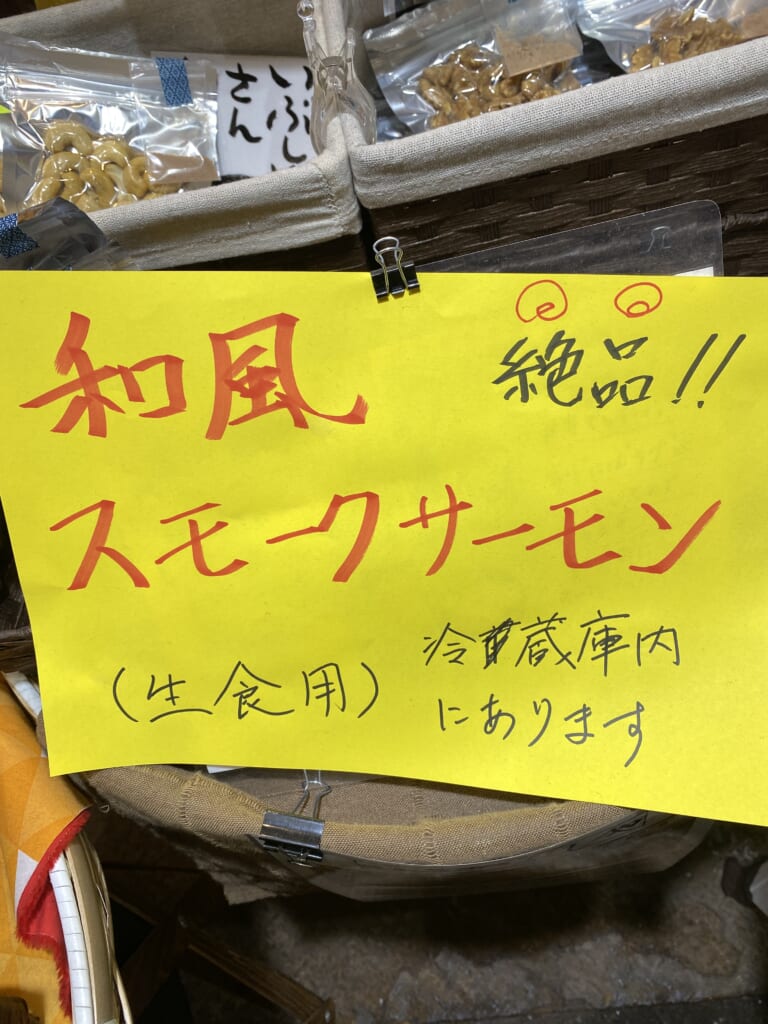 いぶし
さん
和風
絶品!!
スモークサーモン
(生食用)
冷蔵庫内
にあります